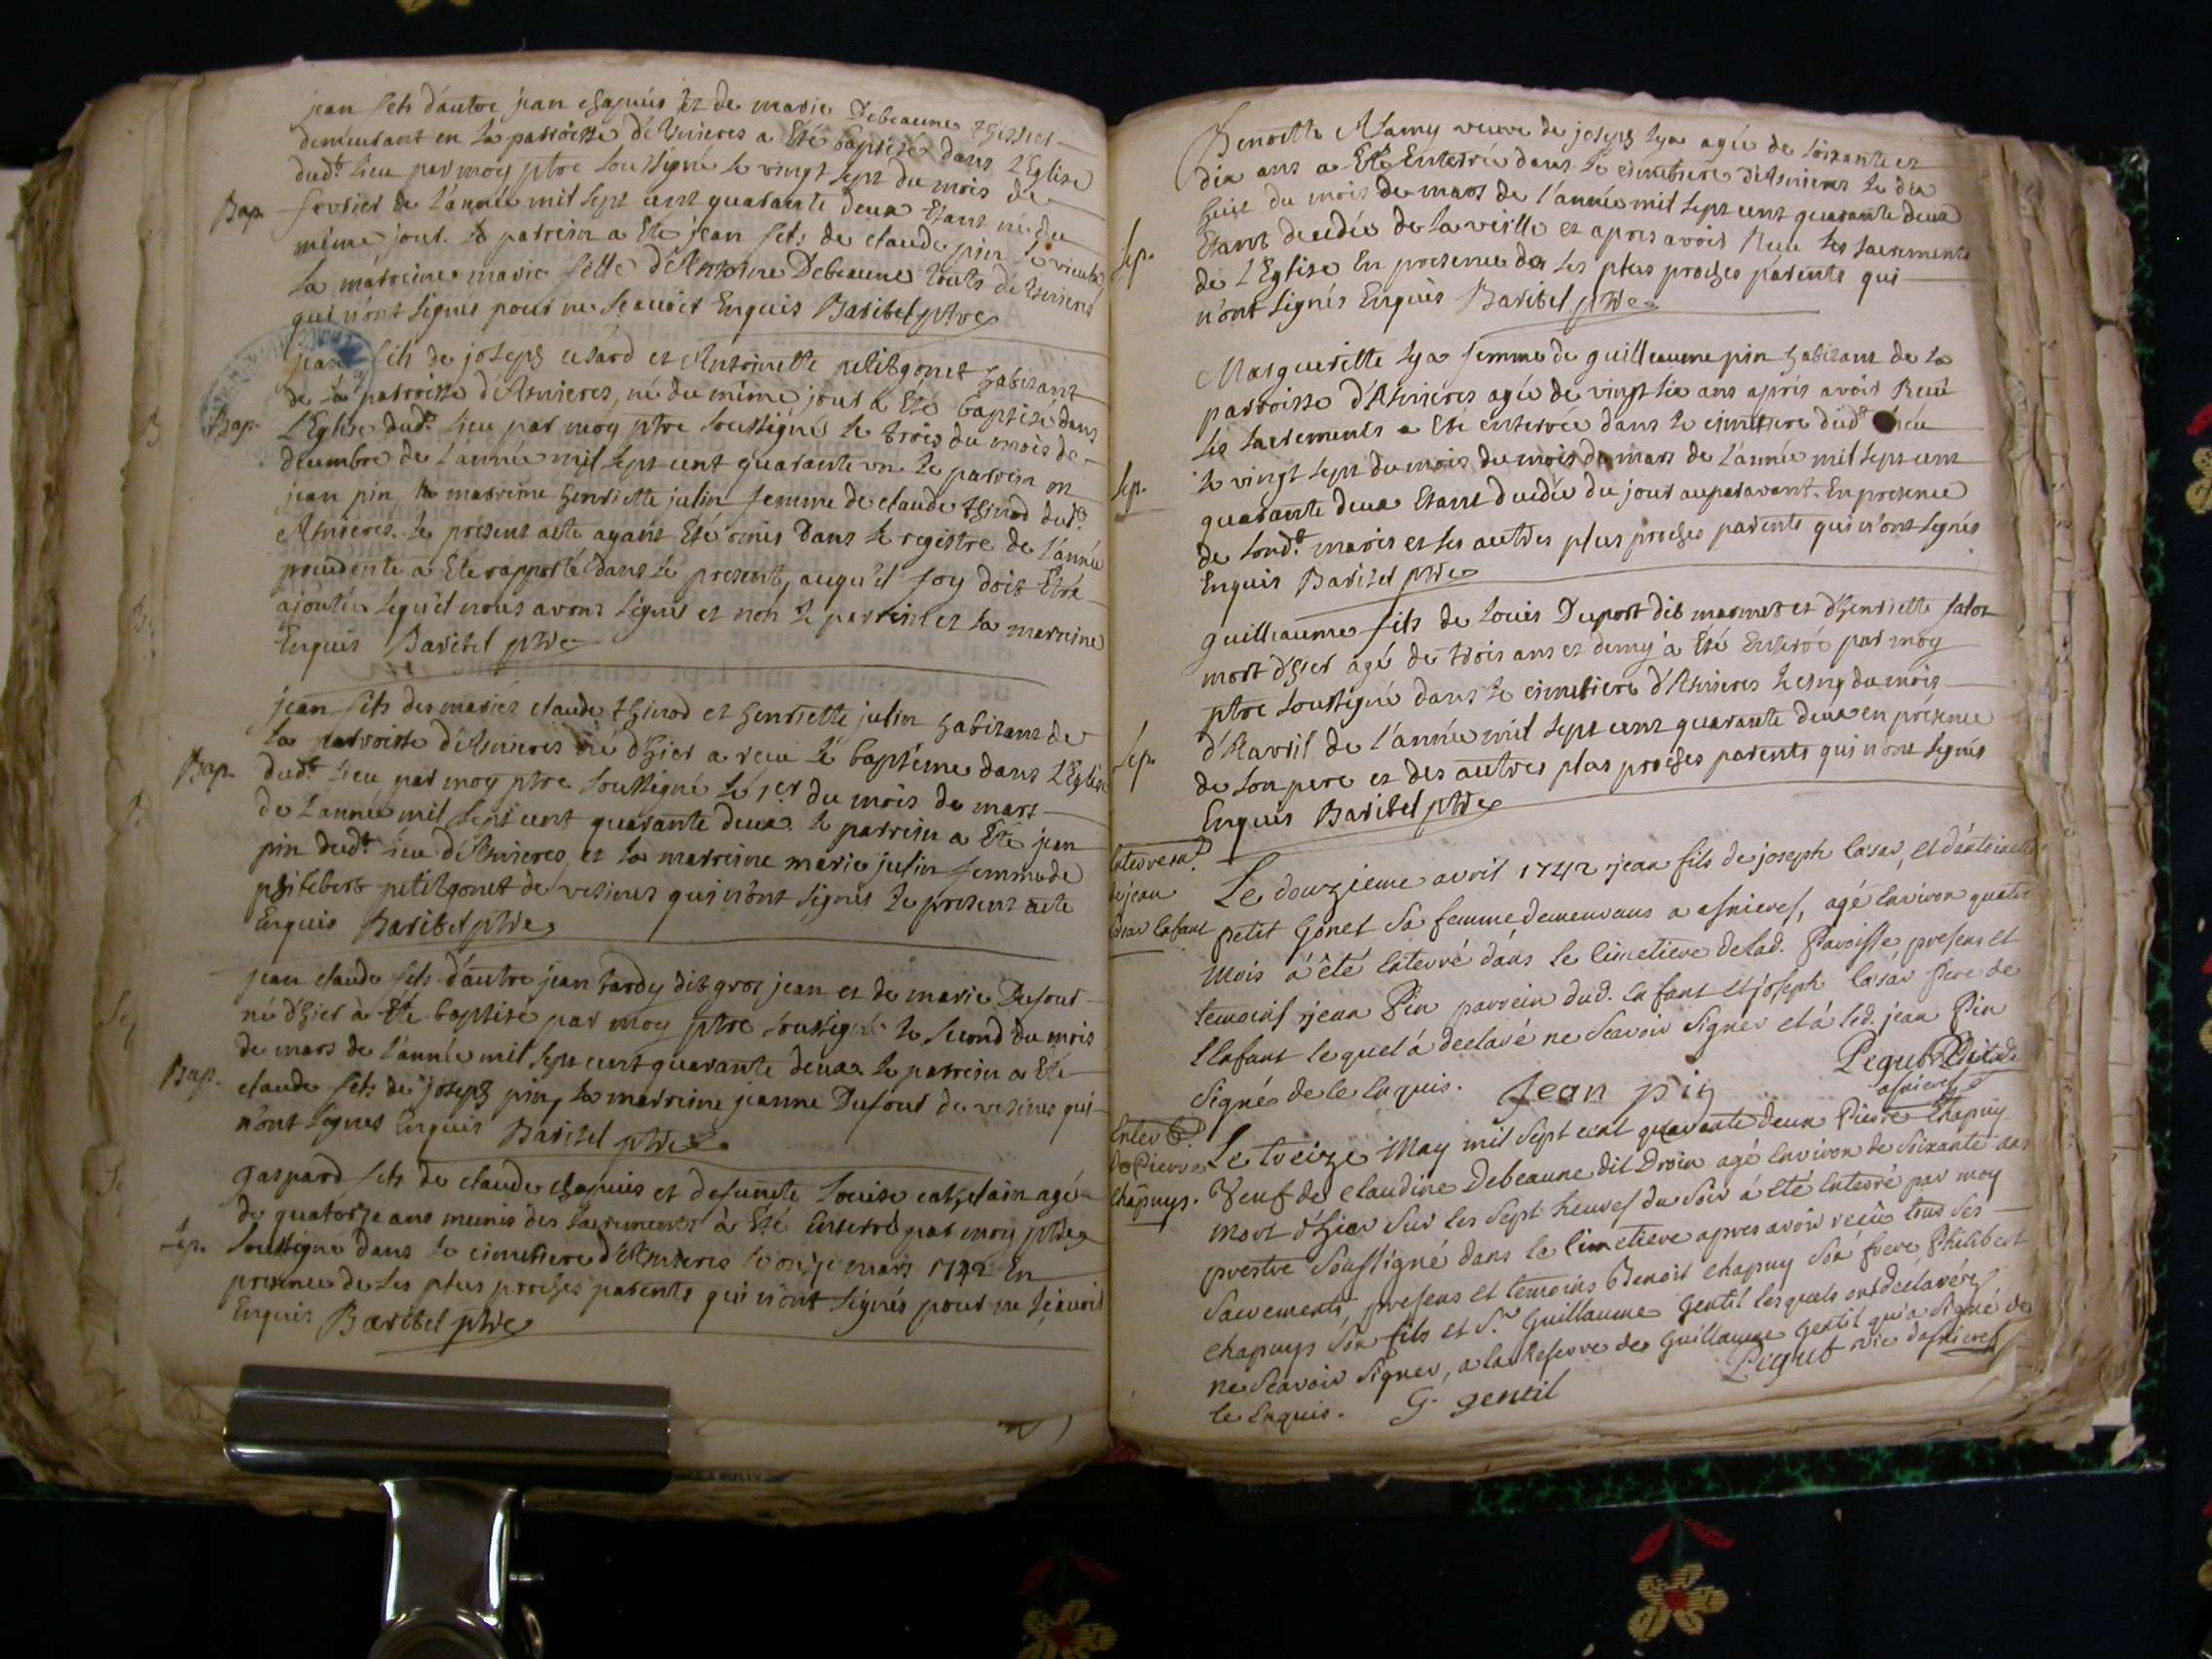 jean fils d'autre jean chapuis et de marie Debeaune thissier
demeurant en la parroisse d'Asnieres a Eté baptisé dans L'Eglise
dudt lieu par moy ptre soussigné le vingt sept du mois de
Bap. fevrier de l'année mil sept cent quarante deux Etant né du
même jour. le parrein a Eté jean fils de claude pin le vieux
la marreine marie fille d'Antoine Debeaune touts d'Asnieres
qui n'ont signés pour ne sçavoir Enquis Baritel ptre
jean fils de joseph casard et Antoinette petitgonet habitant
de la parroisse d'Asnieres, né du même jour a Eté baptisé dans
Bap. L'Eglise dudt lieu par moy ptre soussigné le trois du mois de
decembre de l'année mil sept cent quarante un le parrein
jean pin la marreine henriette julin femme de claude thinod dudt
Asnieres. le present acte ayant Eté omis Dans le registre de l'année
precedente a Eté rapporté dans le present, auqu'el foy doit Etre
ajoutée lequ'el nous avons signé et non le parrein et la marreine
Enquis Baritel ptre
jean fils des mariez claude thinod et henriette julin habitans de
la parroisse d'Asnieres né d'hier a reçu le baptême dans L'Eglise
Bap. dudt lieu par moy ptre soussigné le 1er du mois de mars
de l'année mil sept cent quarante deux. le parrein a Eté jean
pin dudt lieu d'Asnieres et la marreine marie julin femme de
philibert petitgonet de vesines qui n'ont signés le present acte
Enquis Baritel ptre
jean claude fils d'autre jean tardy dit gros jean et de marie Dufour
né d'hier a Eté baptisé par moy ptre soussigné le second du mois
de mars de l'année mil sept cent quarante deux le parrein a Eté
Bap. claude fils de joseph pin, la marreine jeanne Dufour de vesines qui
n'ont signés Enquis Baritel ptre
gaspard fils de claude chapuis et defunte Louise catelain agé
de quatorze ans munis des sacrements a Eté Enterré par moy ptre
Sep. soussigné dans le cimetiere d'Asnieres le onze mars 1742 En
presence de ses plus proches parents qui n'ont signés pour ne sçavoir
Enquis Baritel ptre
Benoitte Alamy veuve de joseph lya agée de soixante et
dix ans a Eté Enterrée dans le cimetiere d'Asnieres le dix
huit du mois de mars de l'année mil sept cent quarante deux
Sep. Etant decedée de la veille et apres avoir Reçu les sacrements
de L'Eglise En presence de ses plus proches parents qui
n'ont signés Enquis Baritel ptre
Margueritte lya femme de guilleaume pin habitant de la
parroisse d'Asnieres agée de vingt six ans aprés avoir Reçu
les sacrements a Eté enterrée dans le cimetiere dudt lieu
Sep. le vingt sept du mois du mois de mars de l'année mil sept cent
quarante deux Etant decedée du jour auparavant. En presence
de sondt maris et ses autres plus proches parents qui n'ont signés
Enquis Baritel ptre
guilleaume fils de Louis Duport dit marmet et d'henriette
mort d'hier agé de trois ans et demy a Eté Enterré par moy
ptre soussigné dans le cimetiere d'Asnieres le cinq du mois
Sep. d'Avril de l'année mil sept cent quarante deux en présence
de son pere et des autres plus proches parents qui n'ont signés
Enquis Baritel ptre
Enterremt
de jean
enfant
Le douzieme avril 1742 jean fils de joseph Casar, et d'antoinette
petit Gonet sa femme, demeurans a asnieres, agé Environ quatre
mois á êté enterré dans le Cimetiere de lad. Paroisse presens et
temoins jean Pin parrein dud. enfant et joseph Casár Pere de
l'enfant lequel á declaré ne Scavoir Signer et á led. jean Pin
Signé de ce Enquis. Jean pin Pegut
asnieres
Enter
de Pierre
Chapuys.
Le treize May mil sept cent quarante deux Pierre Chapuy
Veuf de Claudine Debeaune dit Droin agé Environ de Soixante ans
mort d'hier Sur les Sept heures du Soir á eté enterré par moy
prestre Soussigné dans le Cimetiere apres avoir reçû tous ses
Sacrements, presens et temoins Benoit chapuy Son frere Philibert
chapuys Son fils et Sr. Guillaume Gentil lesquels ont déclarérés
ne Scavoir Signer, a la Reserve de Guillaume Gentil qu'a Signé de
ce Enquis. G. gentil Pegut vic d'asnieres